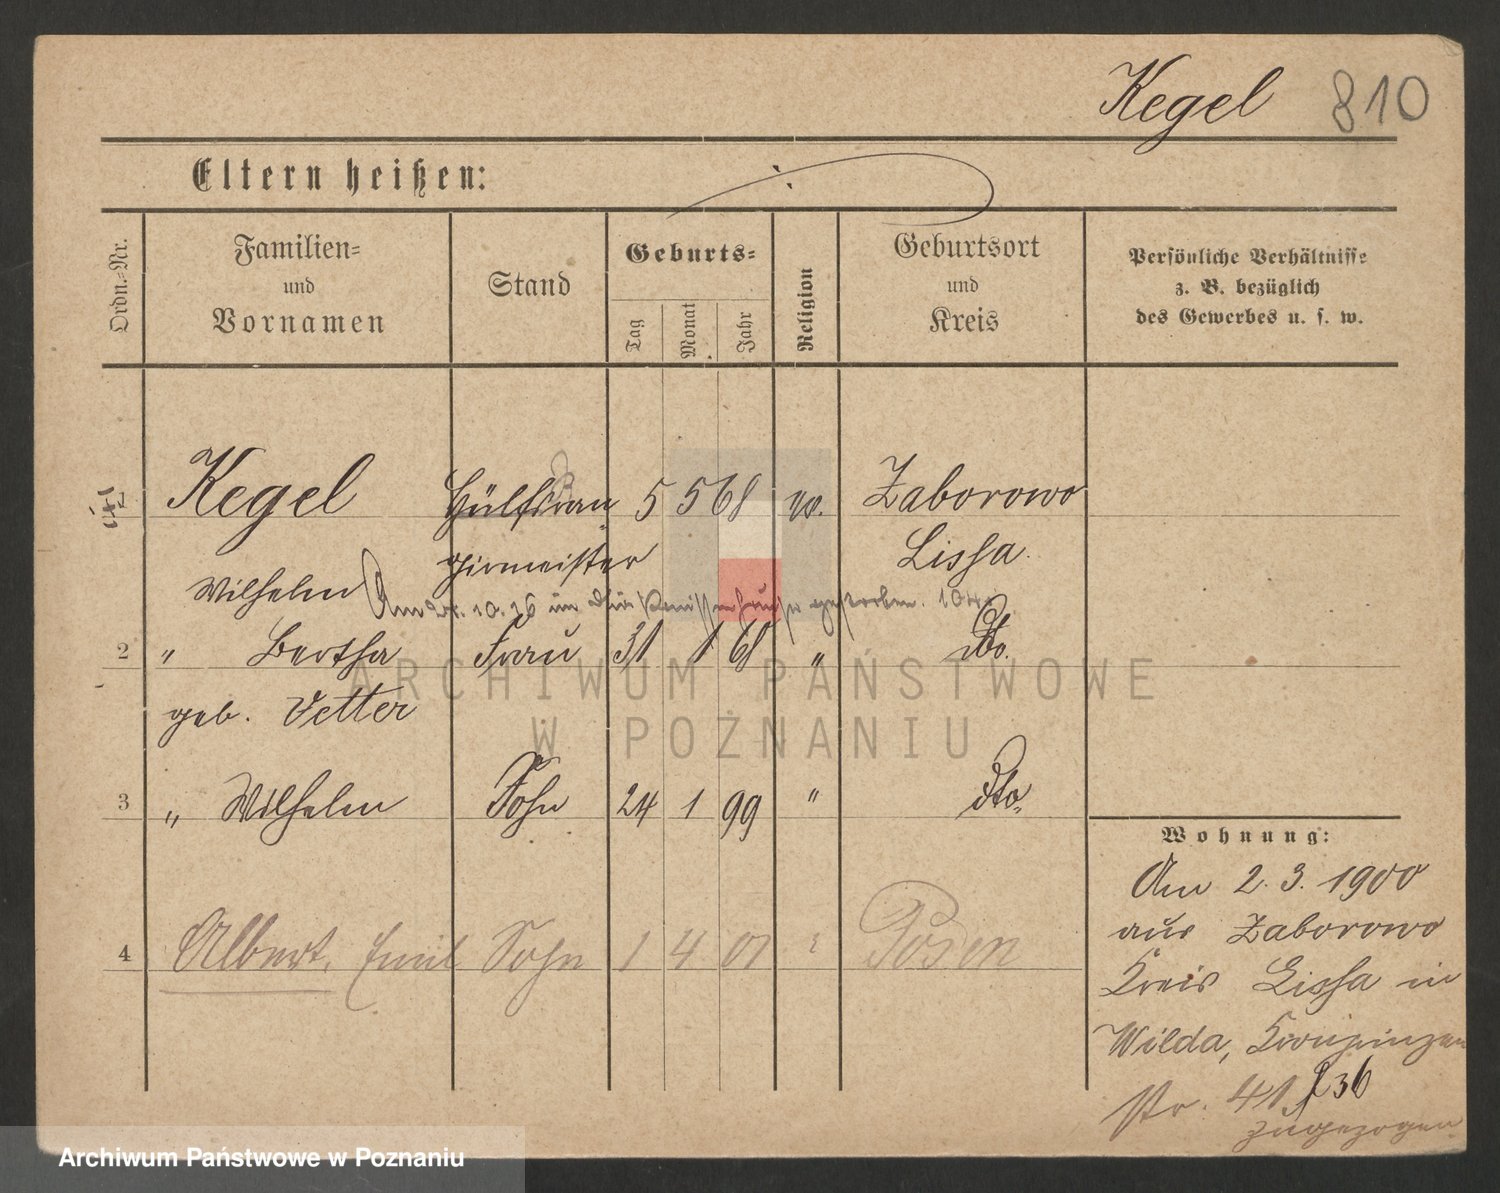 Kegel 810
Eltern heißen:
Ordn.-Nr.
Familien-
und
Vornamen
Stand
Geburts-
Tag
Monat
Jahr
Religion
Geburtsort
und
Kreis
Persönliche Verhältnisse
z. B. bezüglich
des Gewerbes u. s. w.
1 Kegel Hülfsran 5 5 68 Zaborowo
Wilhelm girmeister Lissa
Am 24. 10. 16 im gestorben.
2 " Bertha Frau 31 1 68 " Dto.
geb. Vetter
3 " Wilhelm Sohn 24 1 99 " Dto.
4 Albert, Emil Sohn 1 4 01 " Posen
Wohnung:
Am 2. 3. 1900
aus Zaborowo
Kreis Lissa in
Wilda, Kronprinzen
str. 41/36
zugezogen
ARCHIWUM PAŃSTWOWE
W POZNANIU
Archiwum Państwowe w Poznaniu